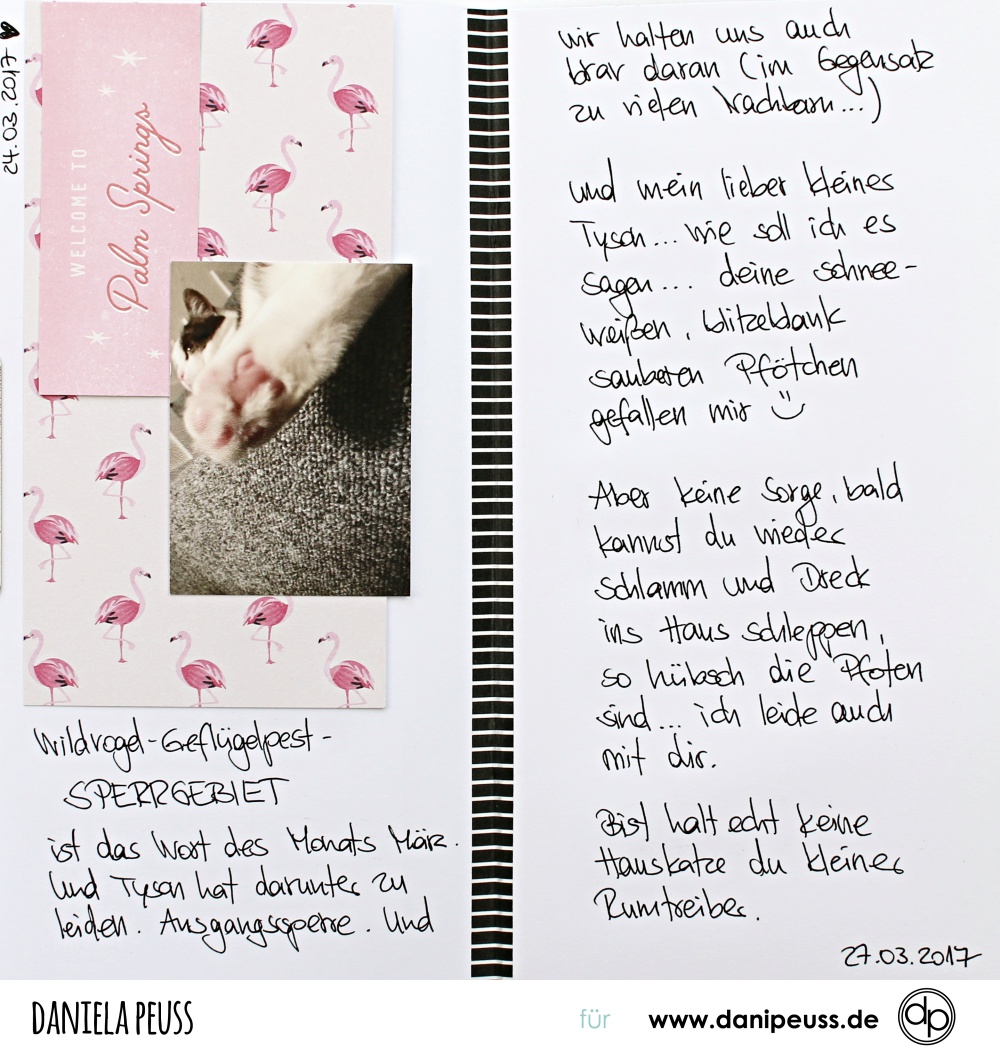 24.03.2017
WELCOME TO
Palm Springs
Wildvogel-Geflügelpest-
SPERRGEBIET
ist das Wort des Monats März.
Und Tyson hat darunter zu
leiden. Ausgangssperre. Und
wir halten uns auch
brav daran (im Gegensatz
zu vielen Nachbarn...)
und mein lieber kleines
Tyson... wie soll ich es
sagen... deine schnee-
weißen, blitzeblank
sauberen Pfötchen
gefallen mir
Aber keine Sorge, bald
kannst du wieder
Schlamm und Dreck
ins Haus schleppen,
so hübsch die Pfoten
sind... ich leide auch
mit dir.
Bist halt echt keine
Hauskatze du kleines
Rumtreiber.
27.03.2017
DANIELA PEUSS
für www.danipeuss.de dp